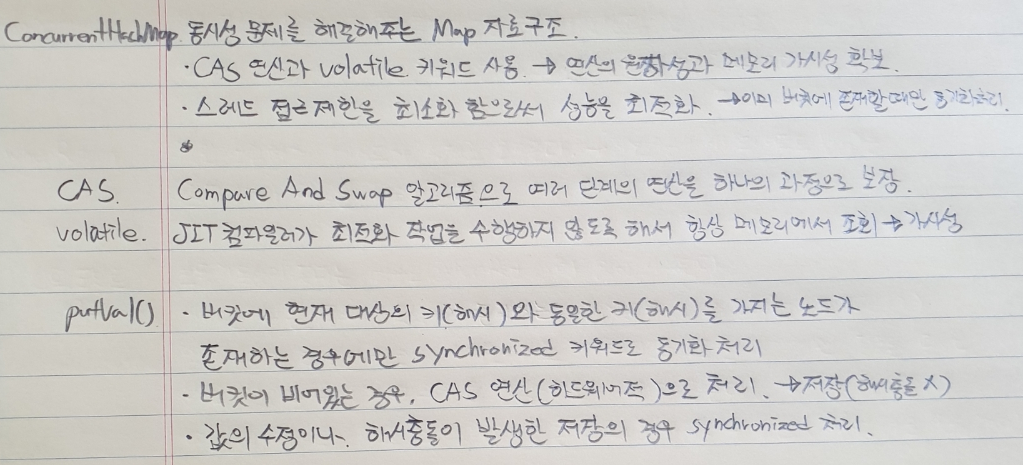 ConcurrentHashMap 동시성 문제를 해결해주는 Map 자료구조.
· CAS 연산과 volatile 키워드 사용 → 연산의 원자성과 메모리 가시성 확보.
· 스레드 접근 제한을 최소화 함으로써 성능을 최적화. →이미 버킷에 존재할때만 동기화처리.
CAS. Compare And Swap 알고리즘으로 여러 단계의 연산을 하나의 과정으로 보장.
volatile. JIT 컴파일러가 최적화 작업을 수행하지 않도록 해서 항상 메모리에서 조회 → 가시성
putVal() · 버킷에 현재 대상의 키(해시)와 동일한 키(해시)를 가지는 노드가
존재하는 경우에만 synchronized 키워드로 동기화 처리
· 버킷이 비어있는 경우, CAS 연산(하드웨어적)으로 처리. →저장(해시충돌 X)
· 값의 수정이나, 해시충돌이 발생한 저장의 경우 synchronized 처리.